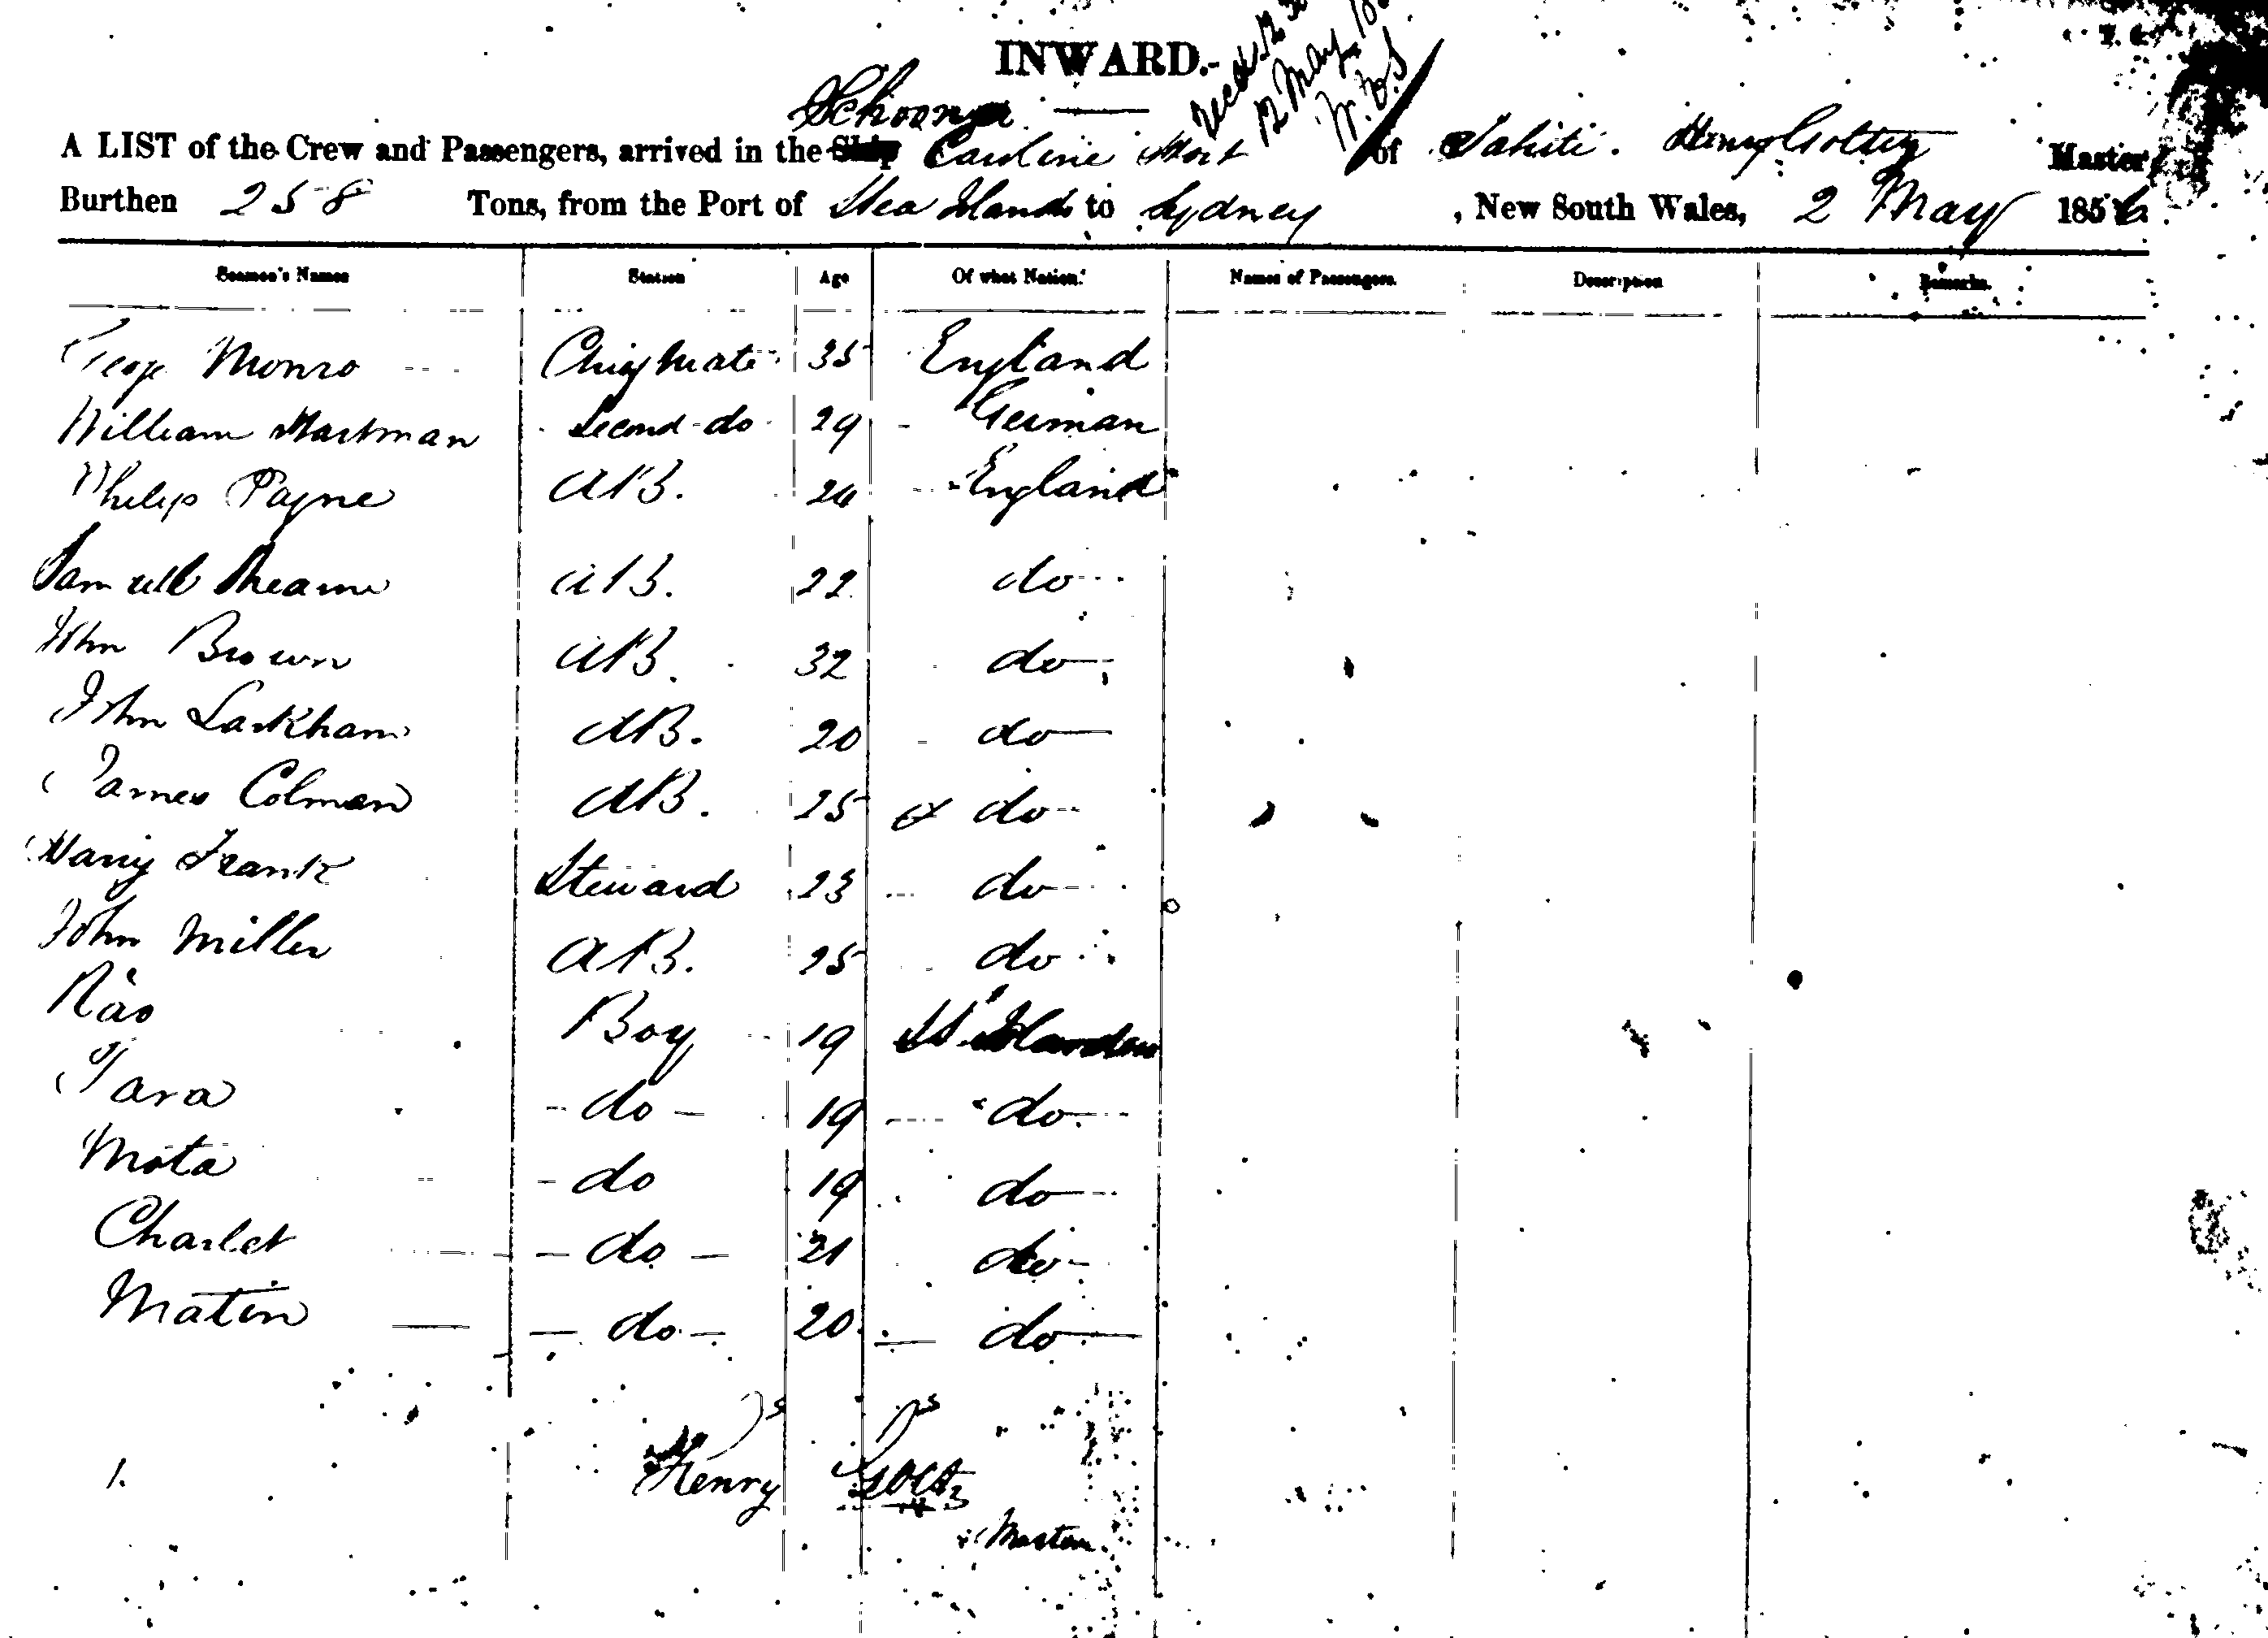 INWARD.-
Schooner
12 May
A LIST of the Crew and Passengers, arrived in the Ship Caroline Hort of Tahiti. Henry Master
Burthen 258 Tons, from the Port of Sea Islands to Sydney, New South Wales, 2 May 1856
Seamen's Names Station Age Of what Nation. Names of Passengers. Description Remarks.
Monro Chief Mate 35 England
William Hartman Second do 29 German
Philip Payne AB. 24 England
Samuell AB. 22 do
John Brown AB. 32 do
John Larkham AB. 20 do
James Colman AB. 25 do
Harry Frank Steward 23 do
John Miller AB. 25 do
Boy 19 S. S. Islander
Tara do 19 do
Mota do 19 do
Charlet do 21 do
Matin do 20 do
1.
Henry
Master